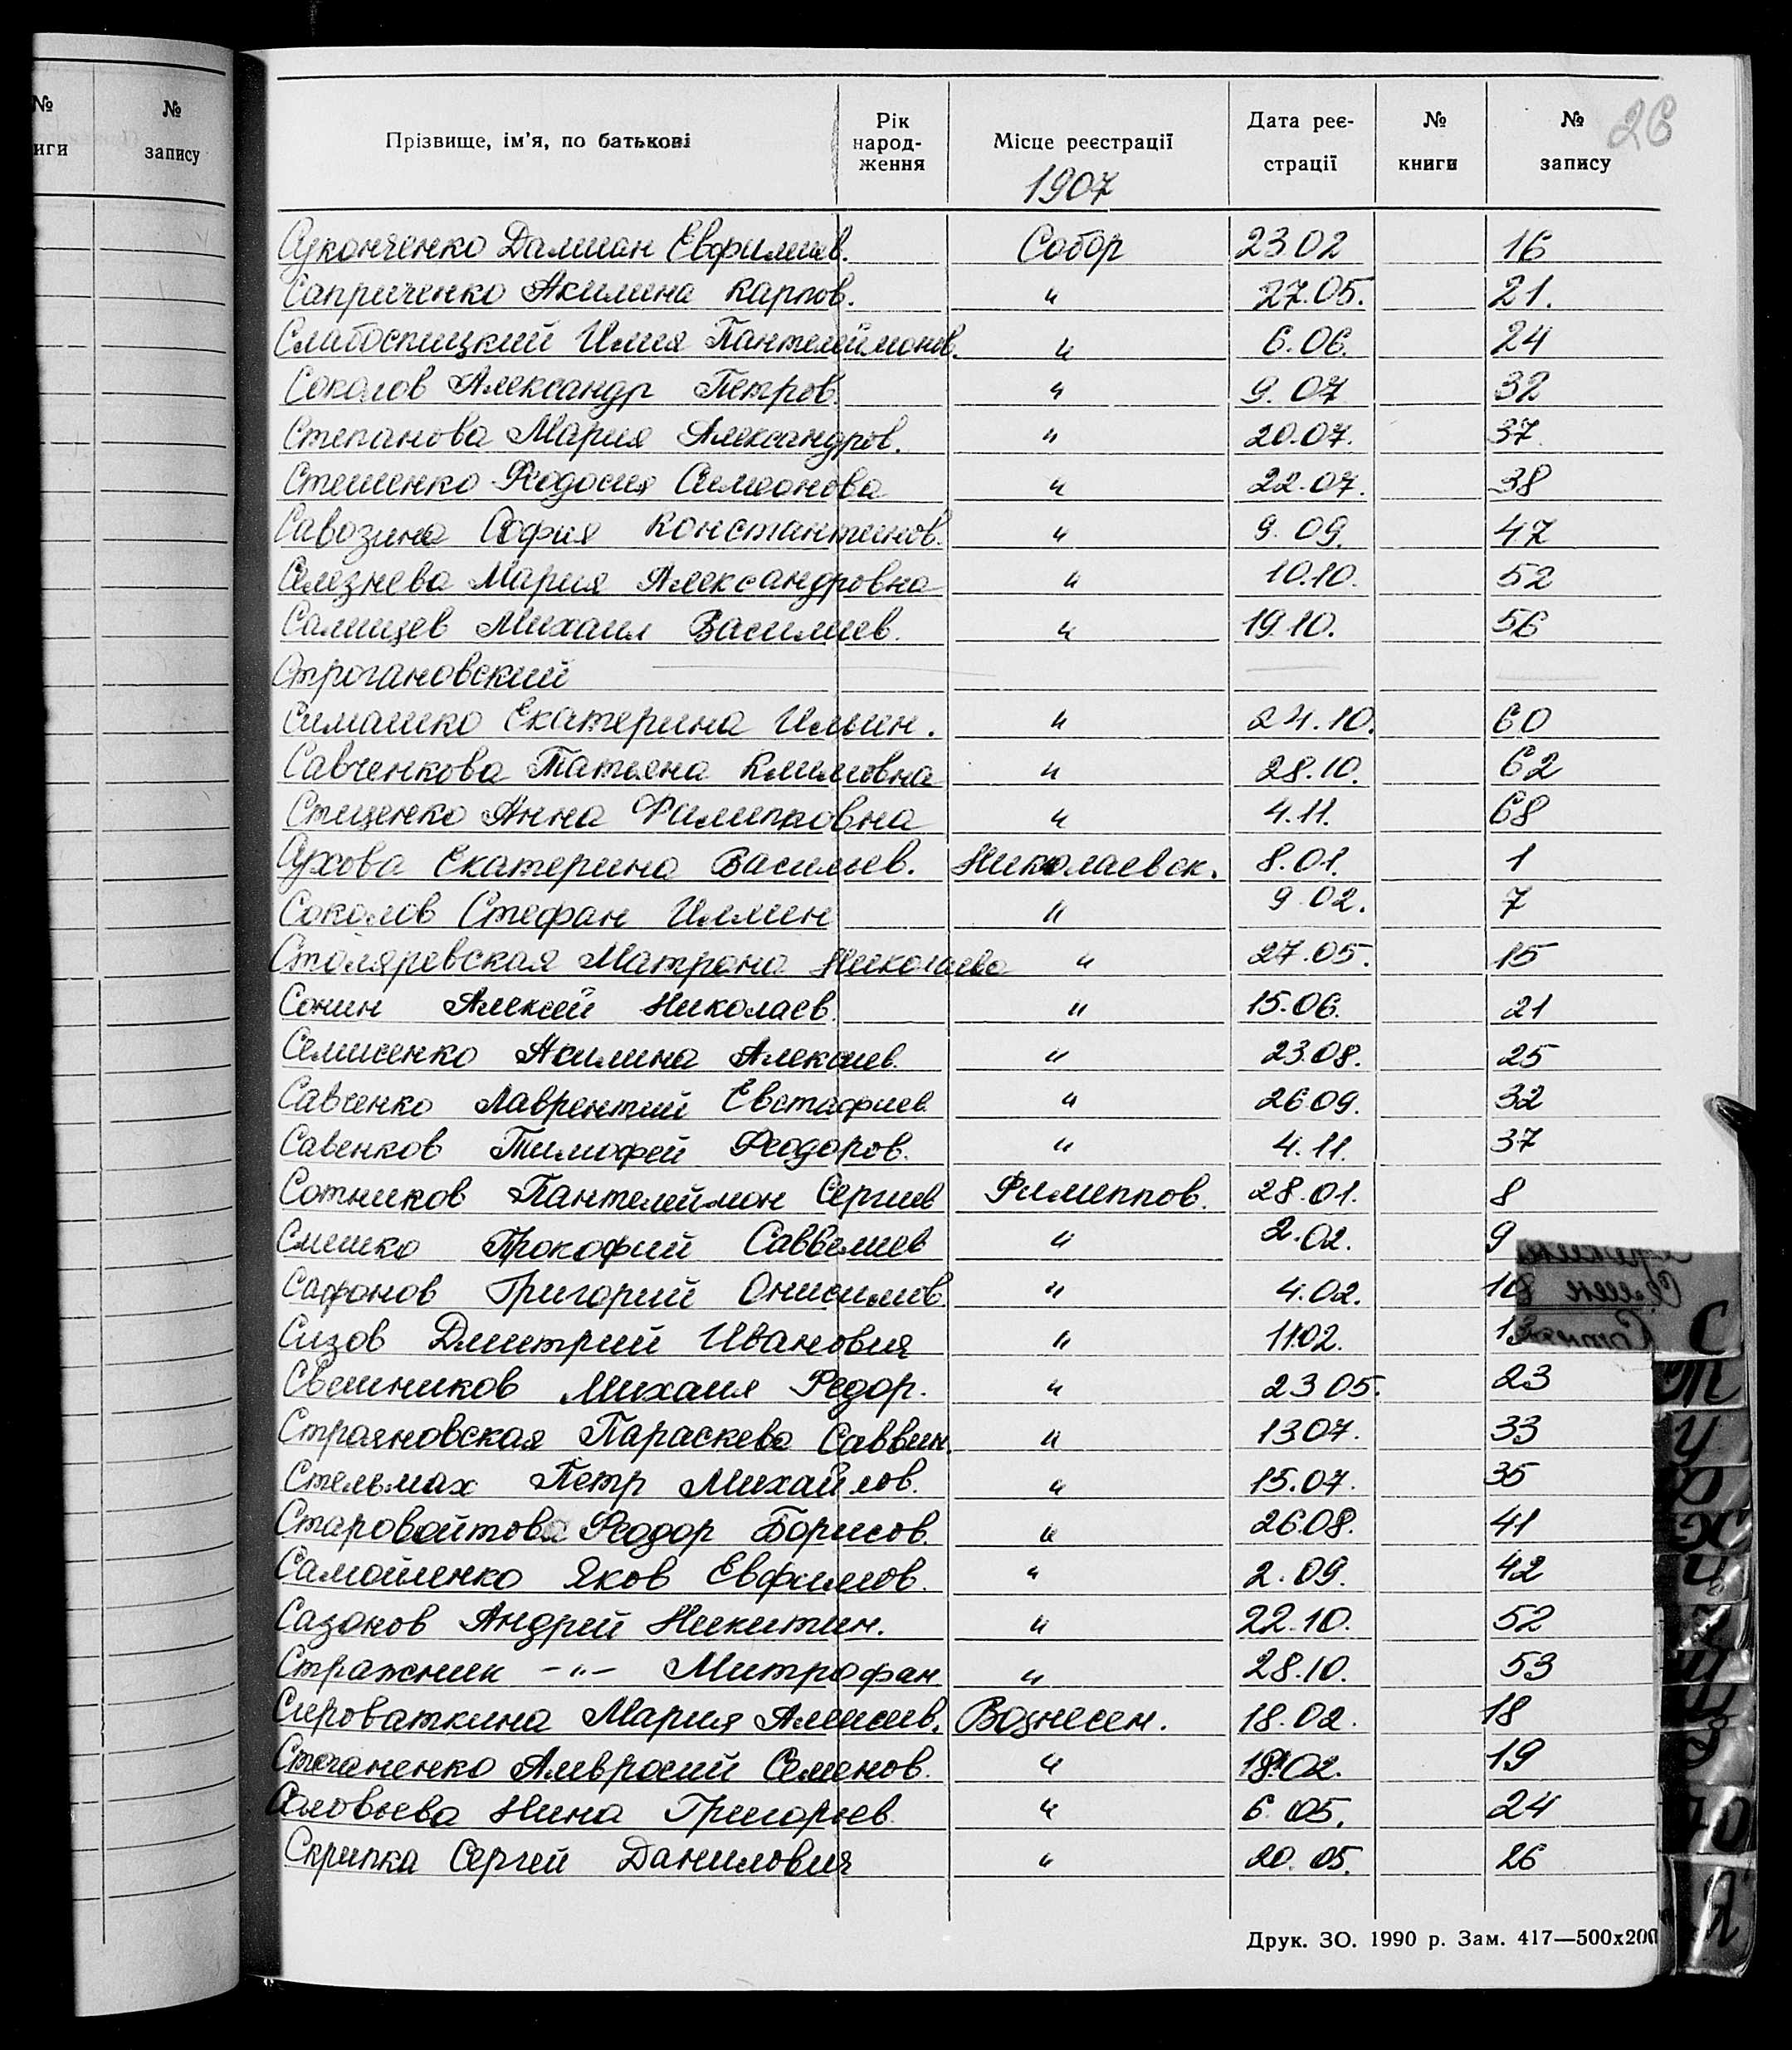 № книги
№ запису
26
Прізвище, ім'я, по батькові Рік народження Місце реєстрації Дата реєстрації № книги № запису
1907
Дамиан Евфимиев. Собор 23 02 16
Саприченко Акилина Карпов. " 27.05. 21.
Слабоспицкий Илия Пантелеймонов. " 6.06. 24
Соколов Александр Петров. " 9. 07 32
Степанова Мария Александров. " 20.07. 37.
Стешенко Феодосия Симеонова " 22.07. 38
Савозина София Константинов. " 9. 09. 47
Селезнева Мария Александровна " 10.10. 52
Михаил Василиев. " 19.10. 56
Строгановский
Симашко Екатерина Ильин. " 24.10. 60
Савченкова Татьяна Климовна " 28.10. 62
Стеценко Анна Филипповна " 4.11. 68
Сухова Екатерина Васильев. Николаевск. 8.01. 1
Соколов Стефан Илиин " 9 02. 7
Столяревская Матрона Николаева " 27.05. 15
Сонин Алексей Николаев. " 15.06. 21
Алексиев. " 23.08. 25
Савченко Лаврентий Евстафиев. " 26 09. 32
Савенков Тимофей Феодоров. " 4.11. 37
Сотников Пантелеймон Сергиев Филиппов. 28.01. 8
Смешко Прокофий " 2.02. 9
Сафонов Григорий Онисимов. " 4.02. 10
Сизов Дмитрий Иванович " 11.02.
Свешников Михаил Федор. " 23 05. 23
Параскева Саввин. " 13 07. 33
Стельмах Петр Михайлов. " 15.07. 35
Старовойтов Феодор Борисов. " 26.08. 41
Самойленко Яков Евфимов. " 2.09. 42
Сазонов Андрей Никитин. " 22.10. 52
Стражник –"– Митрофан " 28.10. 53
Сероваткина Мария Алексиев. Вознесен. 18.02. 18
Амвросий Семенов. " 18.02. 19
Соловьева Нина Григорьев. " 6. 05. 24
Скрипка Сергей Данилович " 20. 05. 26
Друк. ЗО. 1990 р. Зам. 417—500х200
С
Т
У
Ф
Х
Ц
Ч
Ш
Щ
Э
Ю
Я